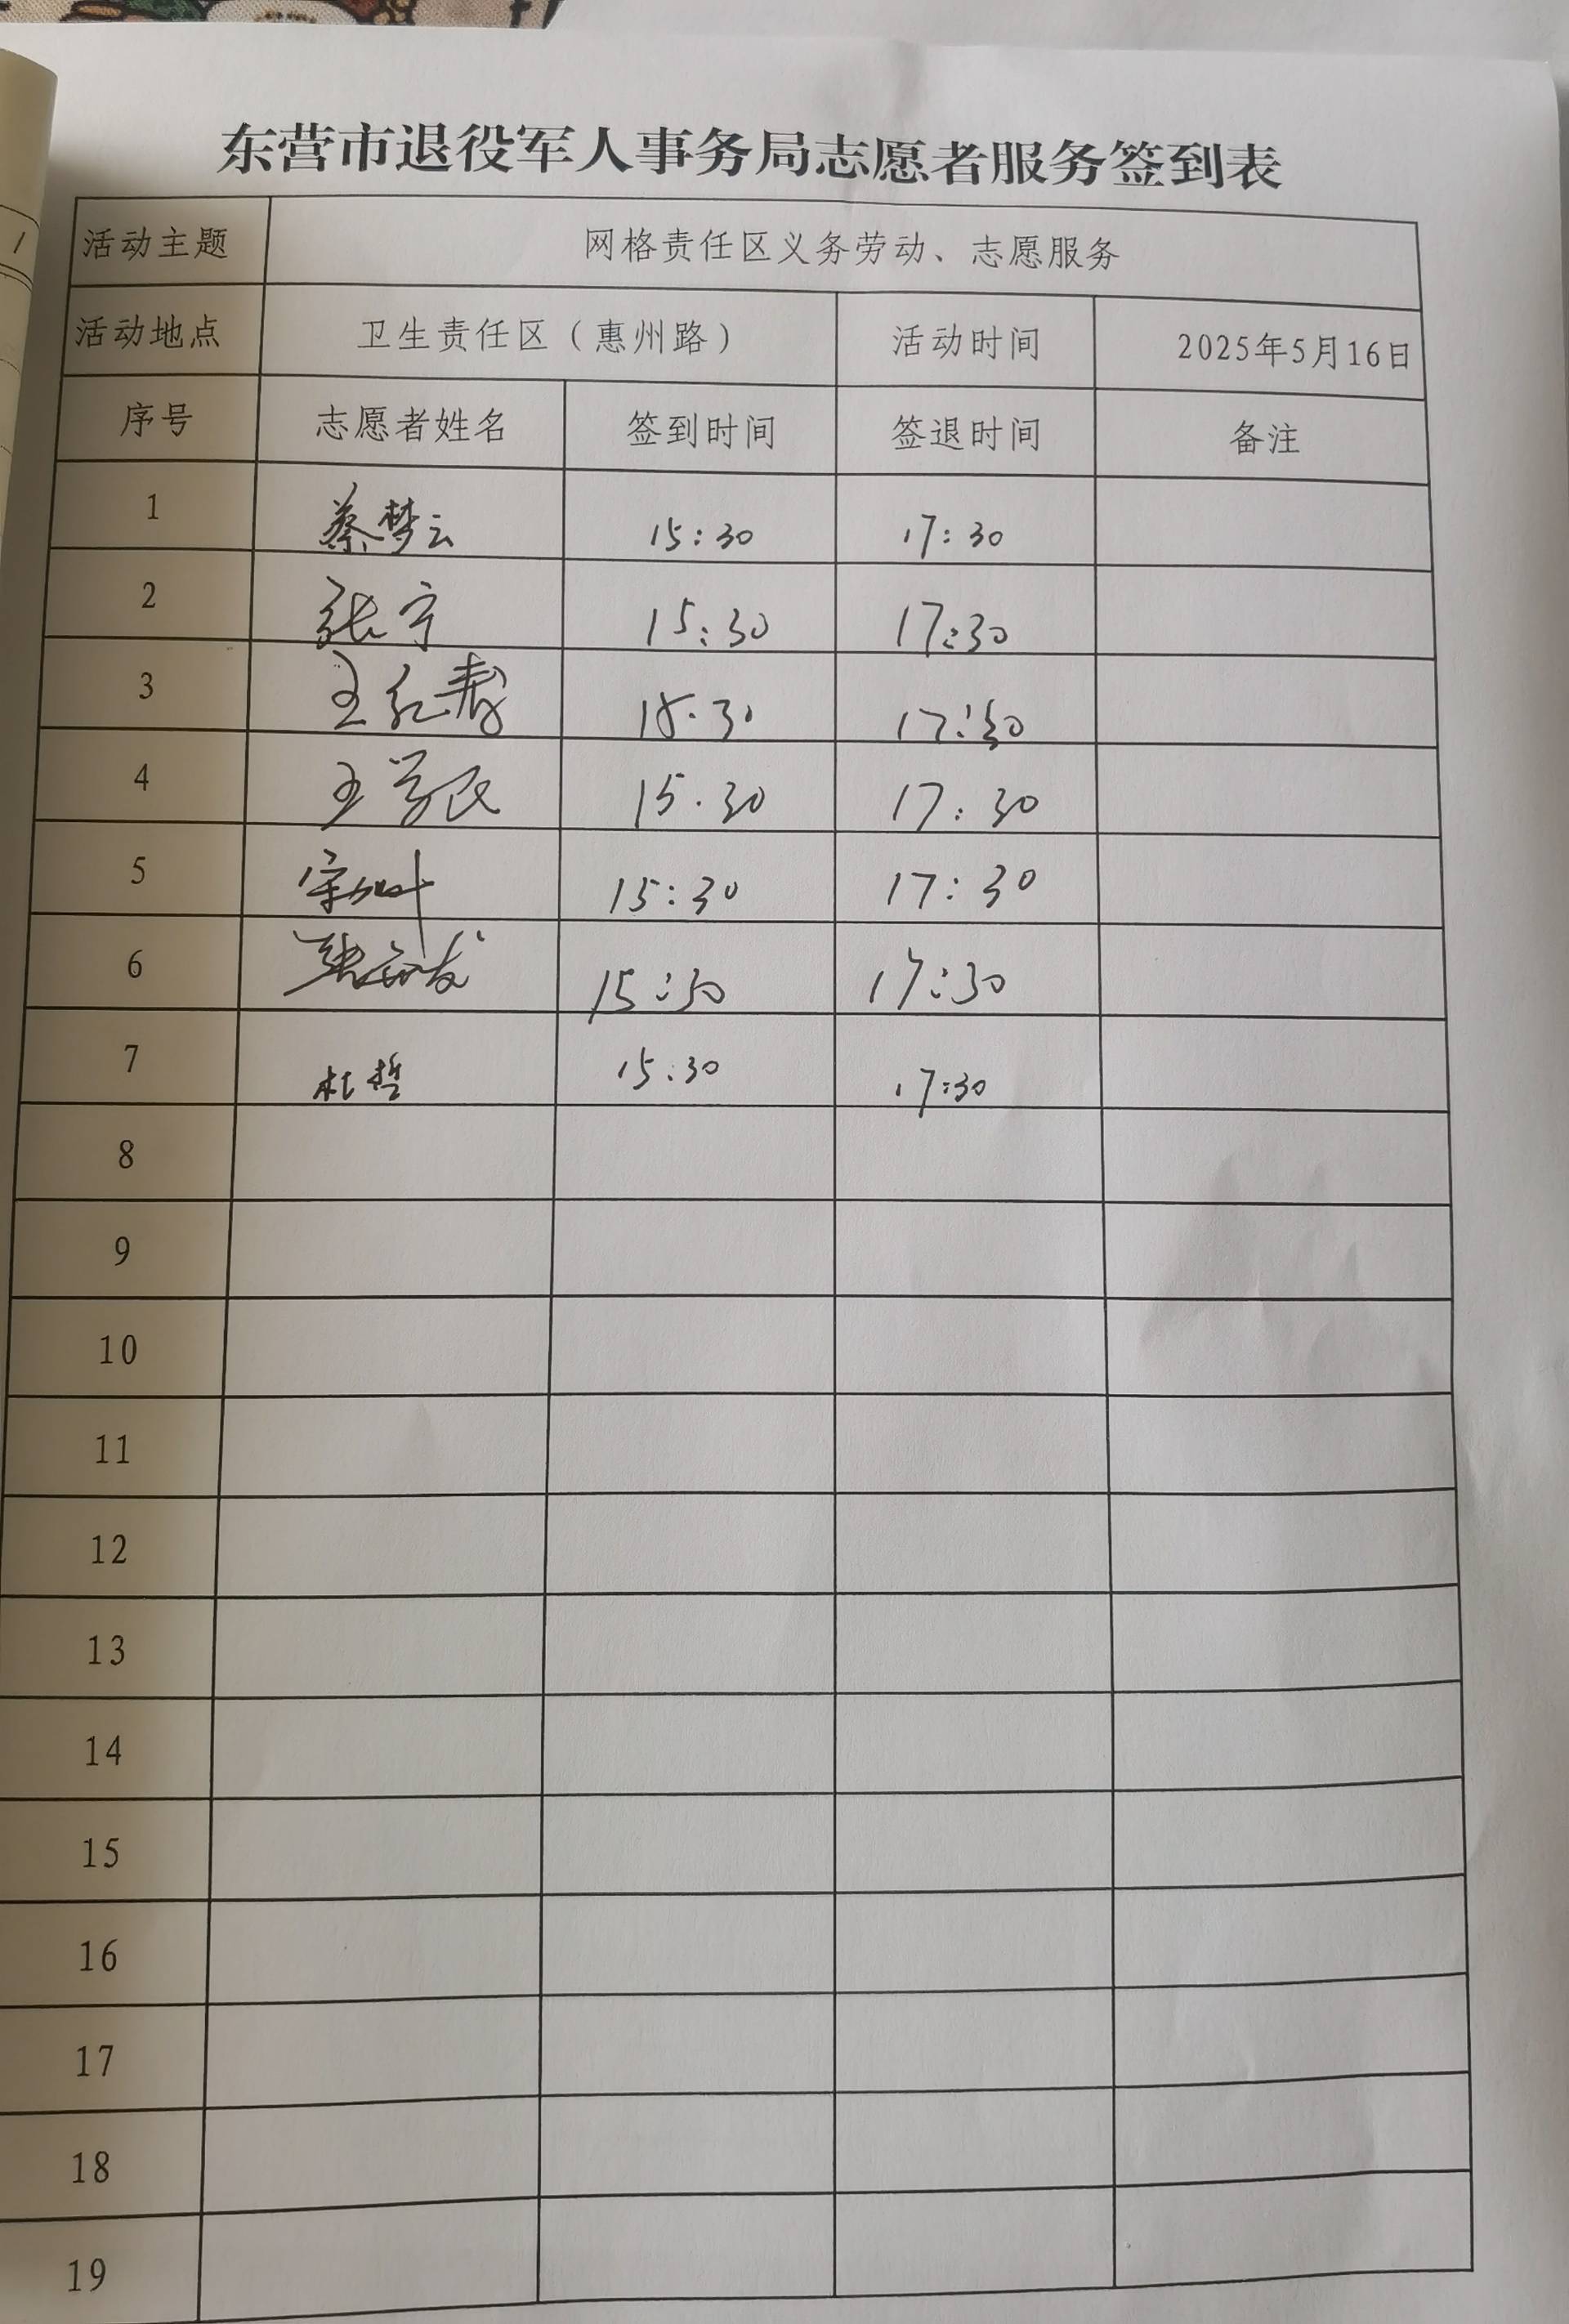 东营市退役军人事务局志愿者服务签到表
活动主题 网格责任区义务劳动、志愿服务
活动地点 卫生责任区（惠州路） 活动时间 2025年5月16日
序号 志愿者姓名 签到时间 签退时间 备注
1 蔡梦云 15:30 17:30
2 张宁 15:30 17:30
3 王红 15.30 17:30
4 王学民 15.30 17:30
5 15:30 17:30
6 张 15:30 17:30
7 杜哲 15:30 17:30
8
9
10
11
12
13
14
15
16
17
18
19